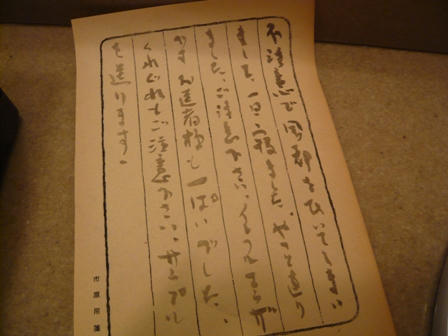 不注意で風邪をひいてしまい
ました。一日寝ました。やっと直り
ました、ご注意下さい、
お医者様も一ぱいでした。
くれぐれもご注意下さい、サンプル
を送ります。
市原用箋